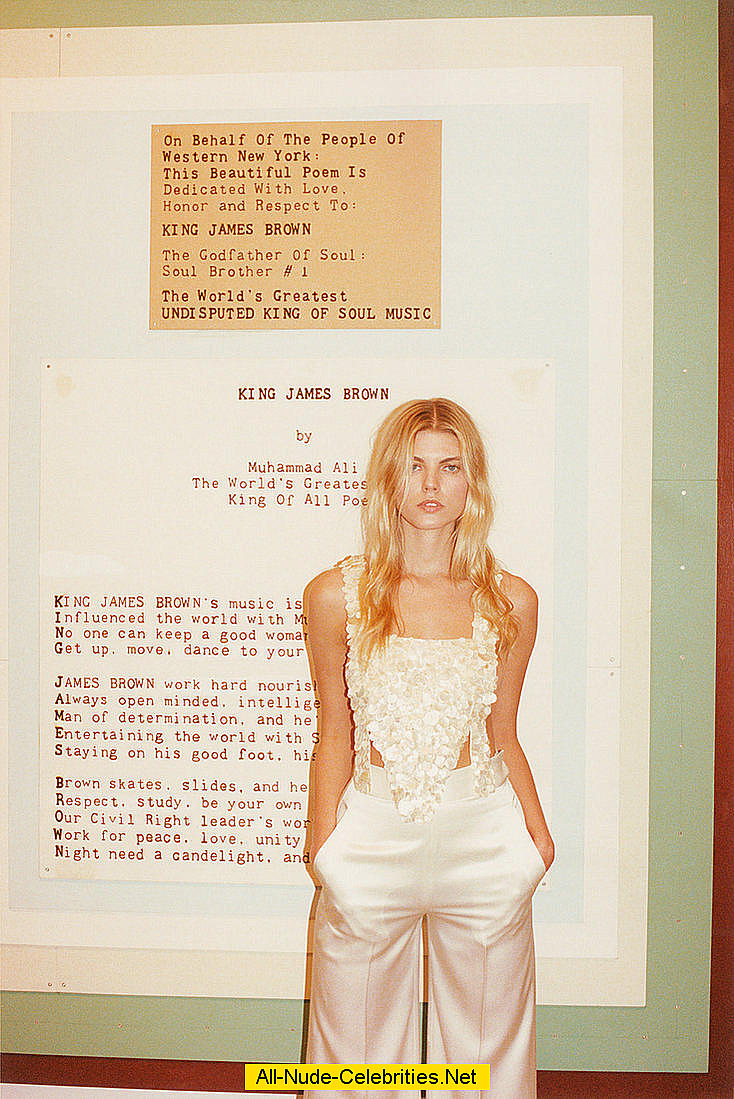 On Behalf Of The People Of
Western New York:
This Beautiful Poem Is
Dedicated With Love,
Honor and Respect To:
KING JAMES BROWN
The Godfather Of Soul:
Soul Brother # 1
The World's Greatest
UNDISPUTED KING OF SOUL MUSIC
KING JAMES BROWN
by
Muhammad Ali
The World's Greates
King Of All Poe
KING JAMES BROWN's music is
Influenced the world with
No one can keep a good woma
Get up, move, dance to your
JAMES BROWN work hard nouris
Always open minded, intellige
Man of determination, and he
Entertaining the world with
Staying on his good foot, his
Brown skates, slides, and he
Respect, study, be your own
Our Civil Right leader's wor
Work for peace, love, unity
Night need a candelight, and
All-Nude-Celebrities.Net